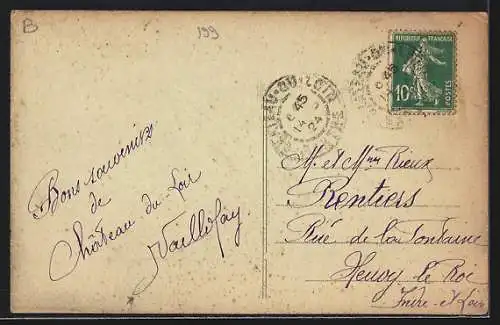 B
199
REPUBLIQUE FRANÇAISE
10c
POSTES
CHATEAU-DU-LOIR
45
24
SARTHE
Bons souvenirs
de
Château du Loir
M. et Mme Rieux
Rentiers
Rue de la Fontaine
Neuvy le Roi
Indre-et-Loire